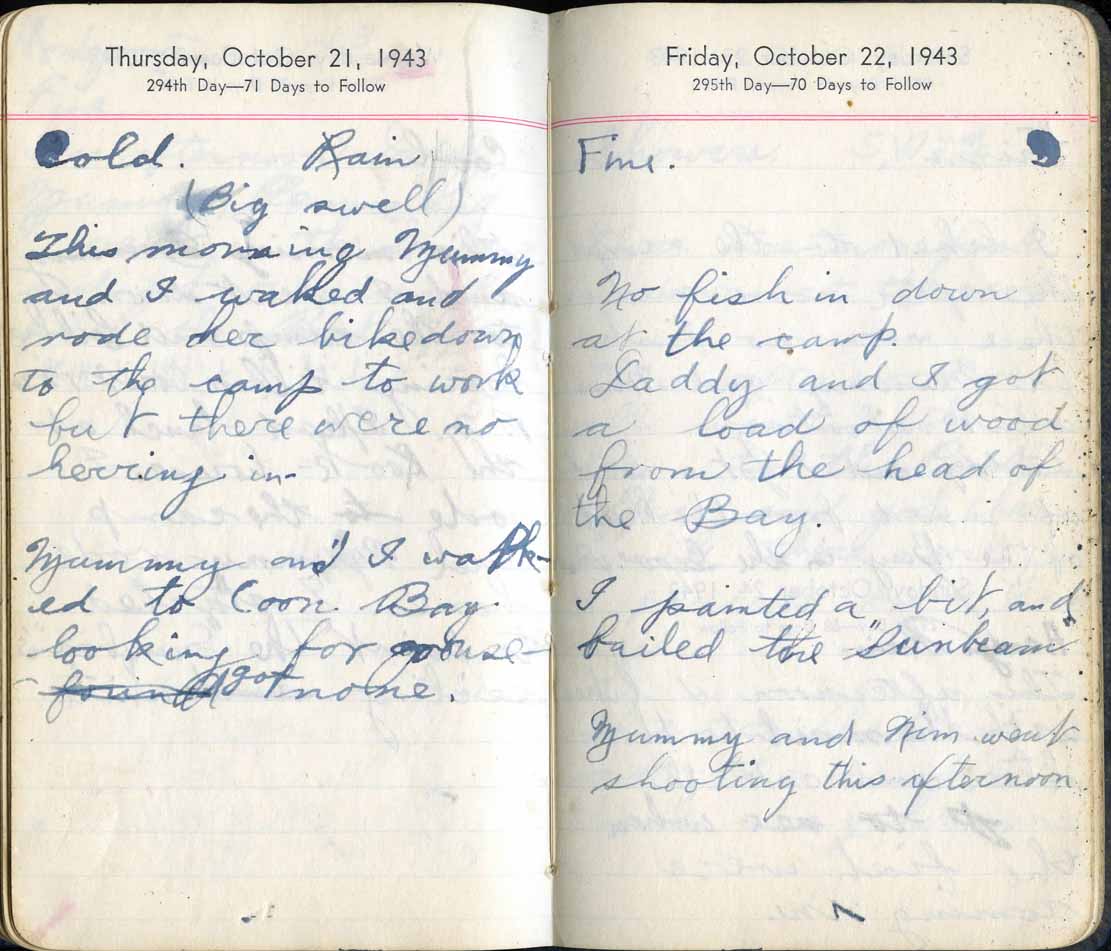 Thursday, October 21, 1943
294th Day—71 Days to Follow
Cold. Rain
(Big swell)
This morning Mummy
and I walked and
rode her bike down
to the camp to work
but there were no
herring in-
Mummy and I walk-
ed to Coon Bay
looking for grouse-
found got none.
Friday, October 22, 1943
295th Day—70 Days to Follow
Fine.
No fish in down
at the camp.
Daddy and I got
a load of wood
from the head of
the Bay.
I painted a bit, and
bailed the "Sunbeam"
Mummy and Wim went
shooting this afternoon